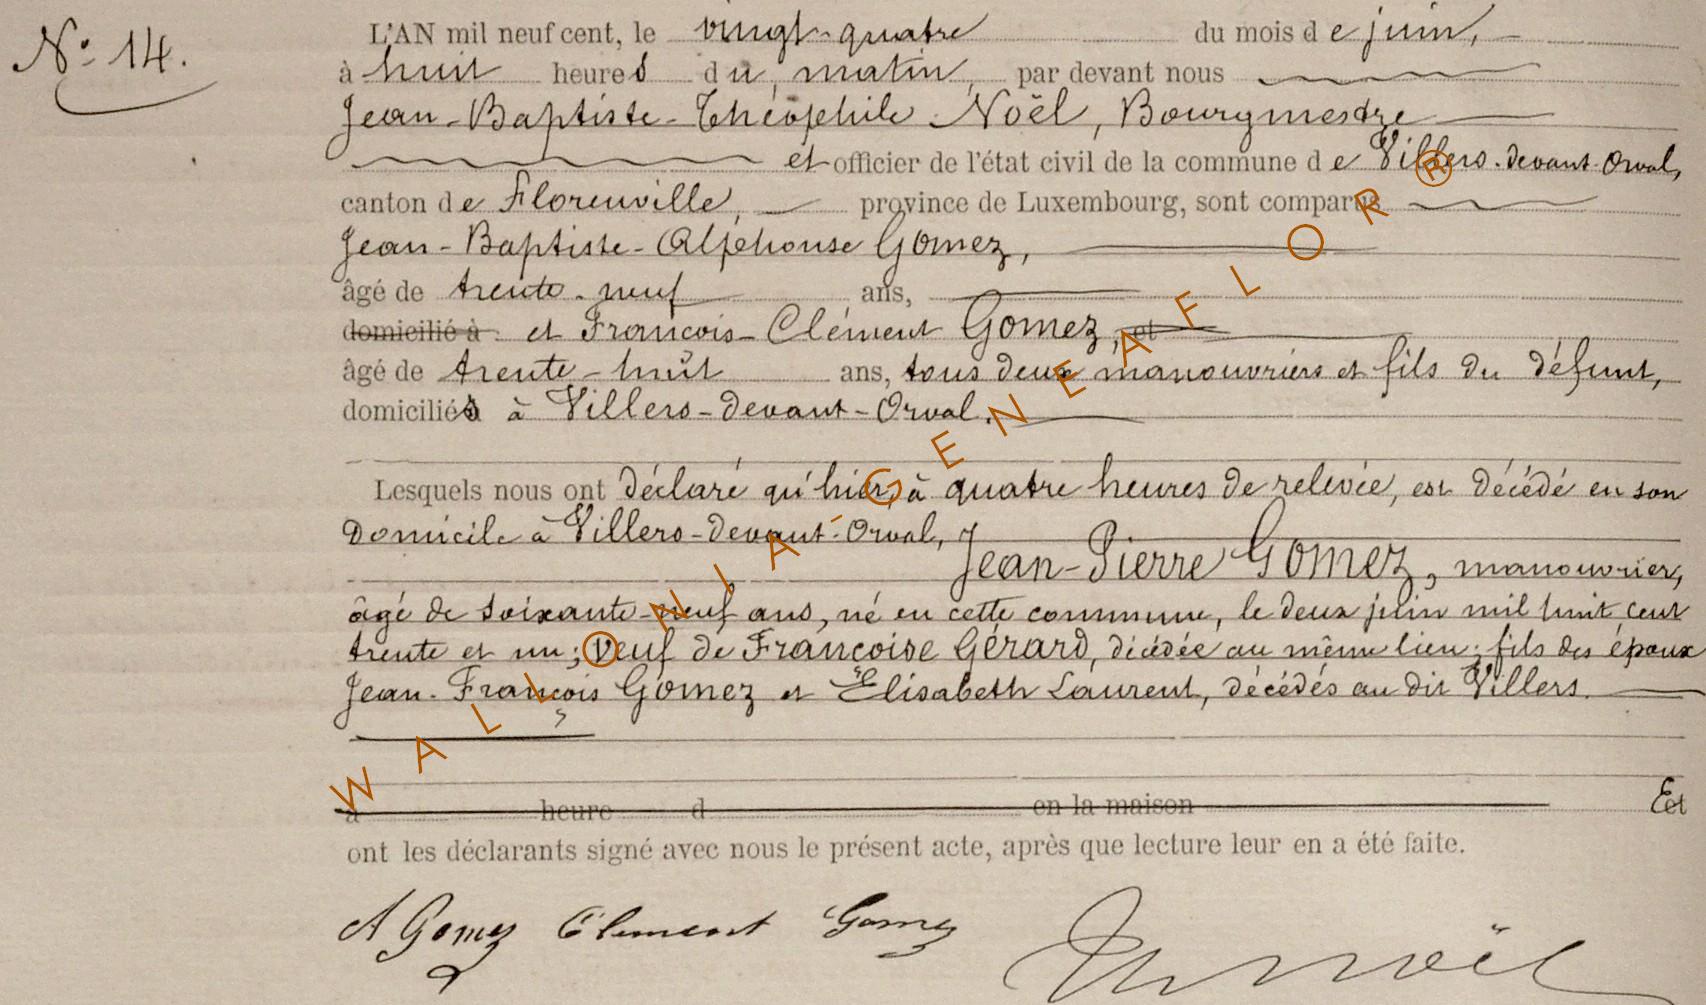 N° 14.
L'AN mil neuf cent, le vingt-quatre du mois de juin,
à huit heures du matin, par devant nous
Jean-Baptiste-Théophile Noël, Bourgmestre
et officier de l'état civil de la commune de Villers-devant-Orval,
canton de Florenville, province de Luxembourg, sont comparus
Jean-Baptiste-Alphonse Gomez,
âgé de trente-neuf ans,
domicilié à et François-Clément Gomez, et
âgé de trente-huit ans, tous deux manouvriers et fils du défunt,
domiciliés à Villers-devant-Orval.
Lesquels nous ont déclaré qu'hier, à quatre heures de relevée, est décédé en son
Domicile à Villers-devant-Orval,
Jean-Pierre Gomez, manouvrier,
âgé de soixante-neuf ans, né en cette commune, le deux juin mil huit cent
trente et un; veuf de Françoise Gérard, décédée au même lieu; fils des époux
Jean-François Gomez et Elisabeth Laurent, décédés au dit Villers.
à heure d en la maison Et
ont les déclarants signé avec nous le présent acte, après que lecture leur en a été faite.
A Gomez Clement Gomez Th Noël
WALLONIA-GENEAFLOR®